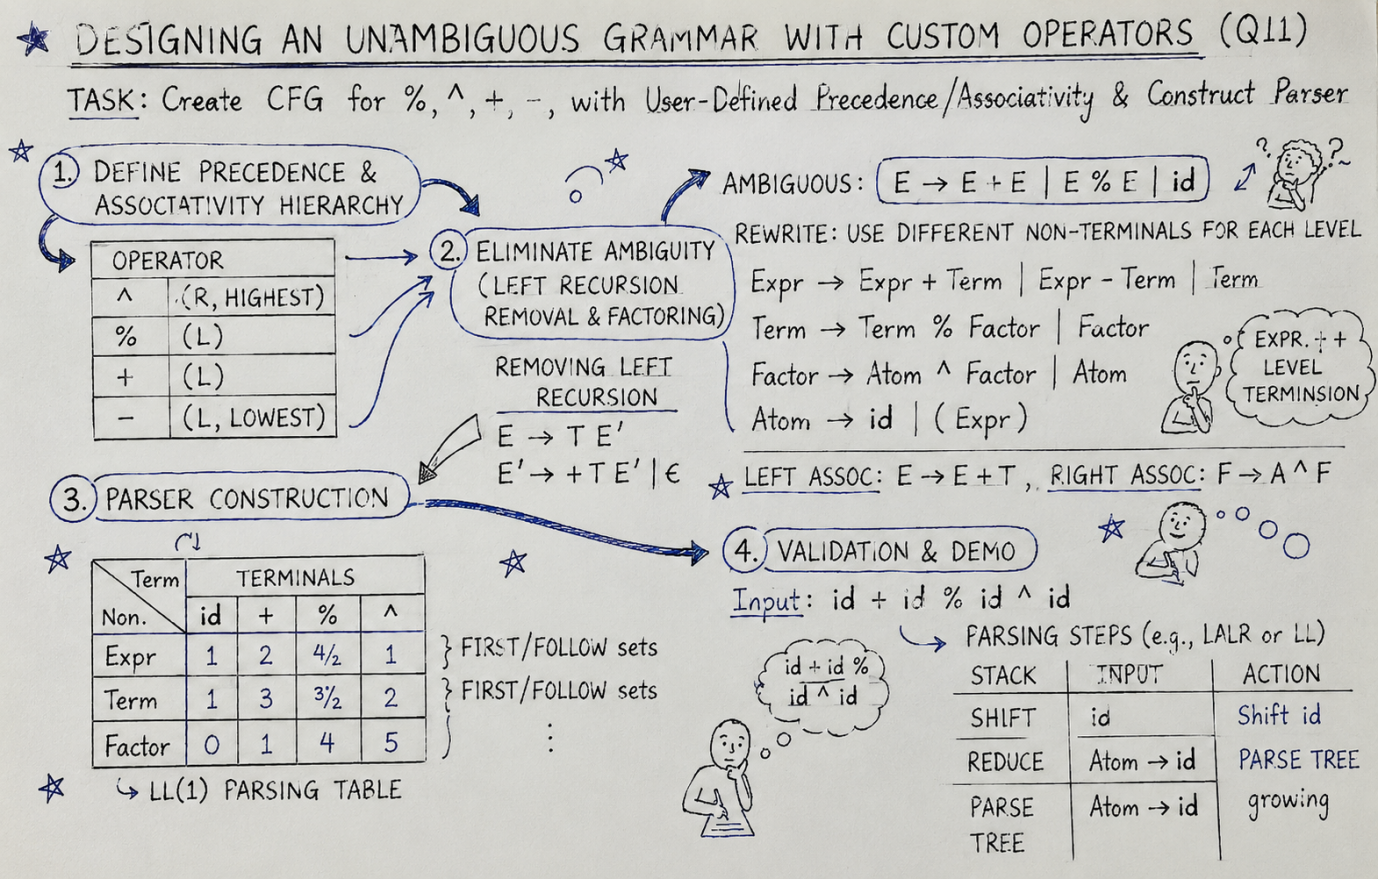 DESIGNING AN UNAMBIGUOUS GRAMMAR WITH CUSTOM OPERATORS (Q11)
TASK: Create CFG for %, ^, +, -, with User-Defined Precedence/Associativity & Construct Parser
1. DEFINE PRECEDENCE &
ASSOCTATIVITY HIERARCHY
OPERATOR
^ (R, HIGHEST)
% (L)
+ (L)
- (L, LOWEST)
2. ELIMINATE AMBIGUITY
(LEFT RECURSION
REMOVAL & FACTORING)
REMOVING LEFT
RECURSION
E → T E'
E' → + T E' | €
AMBIGUOUS: E → E + E | E % E | id
? ?
REWRITE: USE DIFFERENT NON-TERMINALS FOR EACH LEVEL
Expr → Expr + Term | Expr - Term | Term
Term → Term % Factor | Factor
Factor → Atom ^ Factor | Atom
Atom → id | ( Expr )
EXPR. + +
LEVEL
TERMINSION
LEFT ASSOC: E → E + T , RIGHT ASSOC: F → A ^ F
3. PARSER CONSTRUCTION
Term TERMINALS
Non. id + % ^
Expr 1 2 4/2 1 } FIRST/FOLLOW sets
Term 1 3 3½ 2 } FIRST/FOLLOW sets
Factor 0 1 4 5
LL(1) PARSING TABLE
4. VALIDATION & DEMO
Input: id + id % id ^ id
id + id %
id ^ id
PARSING STEPS (e.g., LALR or LL)
STACK INPUT ACTION
SHIFT id Shift id
REDUCE Atom → id PARSE TREE
PARSE Atom → id growing
TREE